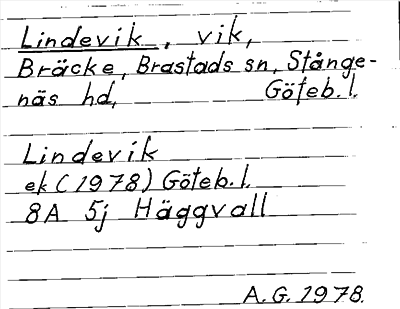 Lindevik, vik,
Bräcke, Brastads sn, Stånge-
näs hd, Göteb. l.
Lindevik
ek (1978) Göteb. l.
8A 5j Häggvall
A. G. 1978.